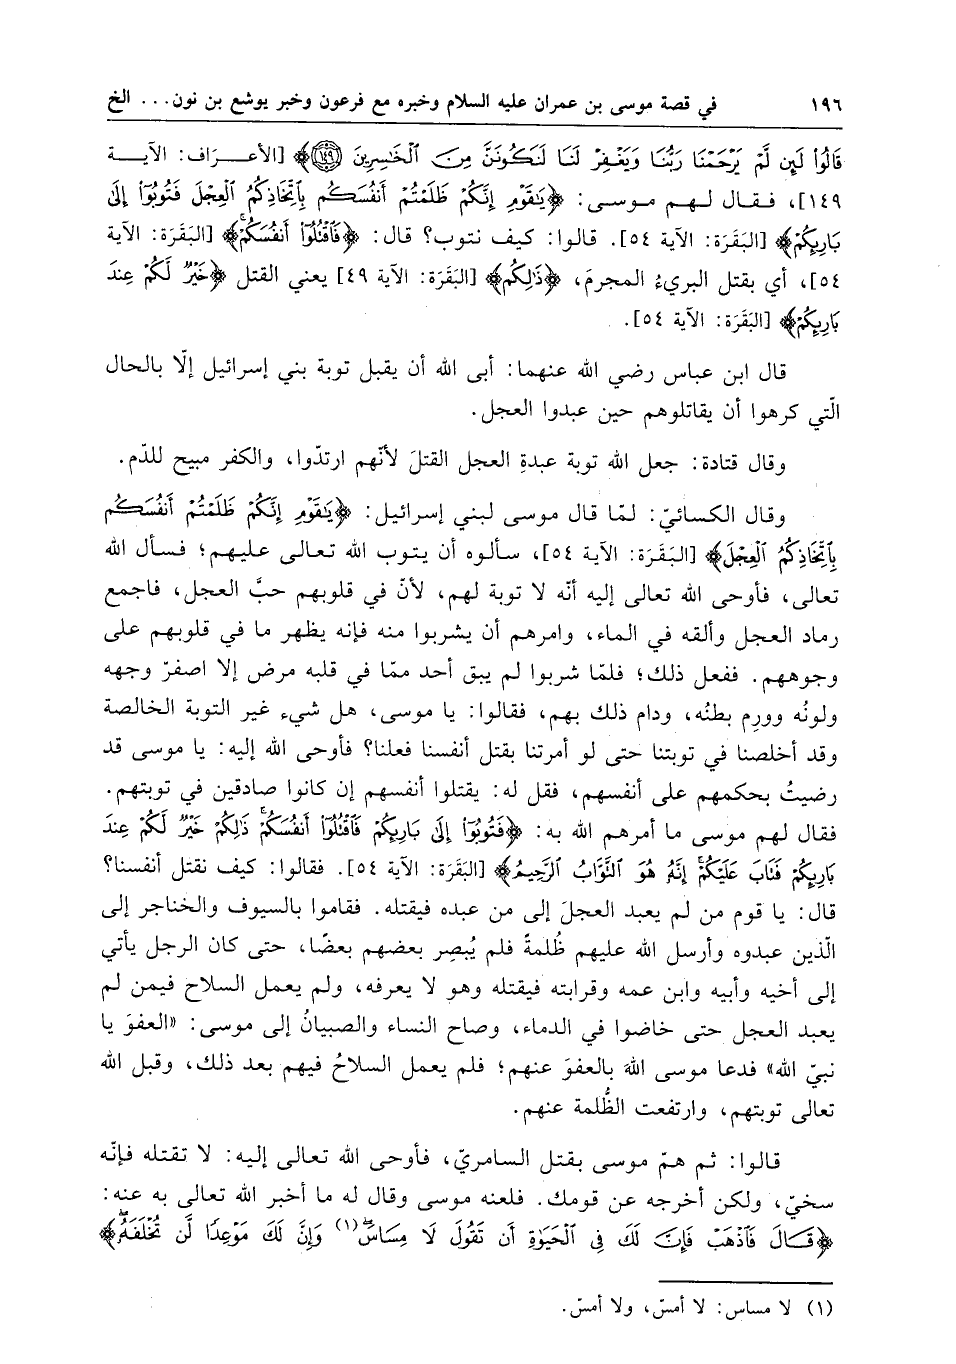 ١٩٦ في قصة موسى بن عمران عليه السلام وخبره مع فرعون وخبر يوشع بن نون... الخ
قَالُوا۟ لَئِن لَّمْ يَرْحَمْنَا رَبُّنَا وَيَغْفِرْ لَنَا لَنَكُونَنَّ مِنَ ٱلْخَٰسِرِينَ ﴿١٤٩﴾﴾ [الأعـرَاف: الآيـة
١٤٩]، فـقـال لـهـم مـوسـى: ﴿يَٰقَوْمِ إِنَّكُمْ ظَلَمْتُمْ أَنفُسَكُم بِٱتِّخَاذِكُمُ ٱلْعِجْلَ فَتُوبُوٓا۟ إِلَىٰ
بَارِئِكُمْ﴾ [البَقَرَة: الآية ٥٤]. قالوا: كيف نتوب؟ قال: ﴿فَٱقْتُلُوٓا۟ أَنفُسَكُمْ﴾ [البَقَرَة: الآية
٥٤]، أي بقتل البريءُ المجرمَ، ﴿ذَٰلِكُمْ﴾ [البَقَرَة: الآية ٤٩] يعني القتل ﴿خَيْرٌ لَّكُمْ عِندَ
بَارِئِكُمْ﴾ [البَقَرَة: الآية ٥٤].
قال ابن عباس رضي الله عنهما: أبى الله أن يقبل توبة بني إسرائيل إلّا بالحال
الّتي كرهوا أن يقاتلوهم حين عبدوا العجل.
وقال قتادة: جعل الله توبة عبدةِ العجل القتلَ لأنّهم ارتدّوا، والكفر مبيح للدّم.
وقال الكسائيّ: لمّا قال موسى لبني إسرائيل: ﴿يَٰقَوْمِ إِنَّكُمْ ظَلَمْتُمْ أَنفُسَكُم
بِٱتِّخَاذِكُمُ ٱلْعِجْلَ﴾ [البَقَرَة: الآية ٥٤]، سألوه أن يتوب الله تعالى عليهم؛ فسأل الله
تعالى، فأوحى الله تعالى إليه أنّه لا توبة لهم، لأنّ في قلوبهم حبَّ العجل، فاجمع
رماد العجل وألقه في الماء، وامرهم أن يشربوا منه فإنه يظهر ما في قلوبهم على
وجوههم. ففعل ذلك؛ فلمّا شربوا لم يبق أحد ممّا في قلبه مرض إلا اصفرّ وجهه
ولونُه وورِم بطنُه، ودام ذلك بهم، فقالوا: يا موسى، هل شيء غير التوبة الخالصة
وقد أخلصنا في توبتنا حتى لو أمرتنا بقتل أنفسنا فعلنا؟ فأوحى الله إليه: يا موسى قد
رضيتُ بحكمهم على أنفسهم، فقل له: يقتلوا أنفسهم إن كانوا صادقين في توبتهم.
فقال لهم موسى ما أمرهم الله به: ﴿فَتُوبُوٓا۟ إِلَىٰ بَارِئِكُمْ فَٱقْتُلُوٓا۟ أَنفُسَكُمْ ذَٰلِكُمْ خَيْرٌ لَّكُمْ عِندَ
بَارِئِكُمْ فَتَابَ عَلَيْكُمْ إِنَّهُۥ هُوَ ٱلتَّوَّابُ ٱلرَّحِيمُ﴾ [البَقَرَة: الآية ٥٤]. فقالوا: كيف نقتل أنفسنا؟
قال: يا قوم من لم يعبد العجلَ إلى من عبده فيقتله. فقاموا بالسيوف والخناجر إلى
الّذين عبدوه وأرسل الله عليهم ظُلمةً فلم يُبصِر بعضهم بعضًا، حتى كان الرجل يأتي
إلى أخيه وأبيه وابن عمه وقرابته فيقتله وهو لا يعرفه، ولم يعمل السلاح فيمن لم
يعبد العجل حتى خاضوا في الدماء، وصاح النساء والصبيانُ إلى موسى: «العفوَ يا
نبيّ الله» فدعا موسى اللهَ بالعفوَ عنهم؛ فلم يعمل السلاحُ فيهم بعد ذلك، وقبل الله
تعالى توبتهم، وارتفعت الظُّلمة عنهم.
قالوا: ثم همّ موسى بقتل السامريّ، فأوحى الله تعالى إليه: لا تقتله فإنّه
سخيّ، ولكن أخرجه عن قومك. فلعنه موسى وقال له ما أخبر الله تعالى به عنه:
﴿قَالَ فَٱذْهَبْ فَإِنَّ لَكَ فِى ٱلْحَيَوٰةِ أَن تَقُولَ لَا مِسَاسَ(١) وَإِنَّ لَكَ مَوْعِدًا لَّن تُخْلَفَهُۥ﴾
(١) لا مساس: لا أمسّ، ولا أمسّ.